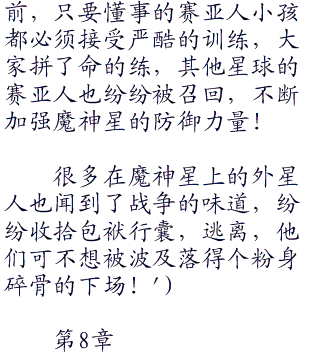 前，只要懂事的赛亚人小孩
都必须接受严酷的训练，大
家拼了命的练，其他星球的
赛亚人也纷纷被召回，不断
加强魔神星的防御力量！
很多在魔神星上的外星
人也闻到了战争的味道，纷
纷收拾包袱行囊，逃离，他
们可不想被波及落得个粉身
碎骨的下场！′）
第8章